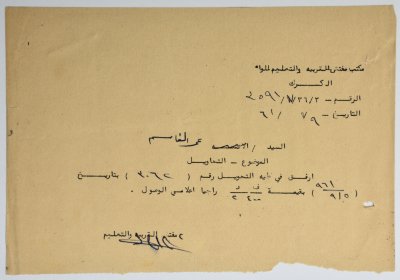 مكتب مفتش التربية والتعليم للواء
الكرك
الرقم - ٣/٣٦/
التاريخ - ٧٩ / ٦١
السيد / عمر القاسم
الموضوع - التحاويل
ارفق في طيه التحويل رقم ( ٣٠٦٢ ) بتاريخ
( ٩٦١ / ٩/٥ ) بقيمة ف د ٢٠٠ ٣ راجيا اعلامي الوصول .
مفتش التربية والتعليم